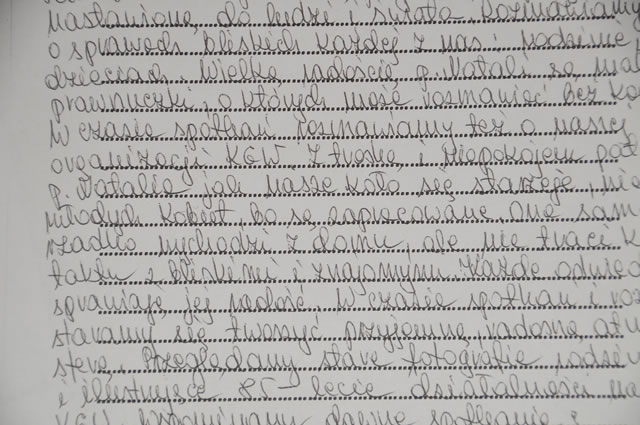 nastawioną do ludzi i świata. Rozmawiamy
o sprawach bliskich każdej z nas: rodzinie,
dzieciach. Wielką radością p. Natalii są
prawnuczki, o których może rozmawiać bez
W czasie spotkań rozmawiamy też o naszej
organizacji KGW. Z troską i niepokojem
p. Natalia, jak nasze koło się starzeje, nie
młodych kobiet, bo są zapracowane. Ona sama
rzadko wychodzi z domu, ale nie traci
z bliskimi i znajomymi. Każde
sprawiają jej radość. W czasie spotkań i
staramy się tworzyć przyjemną, radosną
sferę. Przeglądamy stare fotografie
i ilustrujące 85-lecie działalności
KGW. Wspominamy dawne spotkania